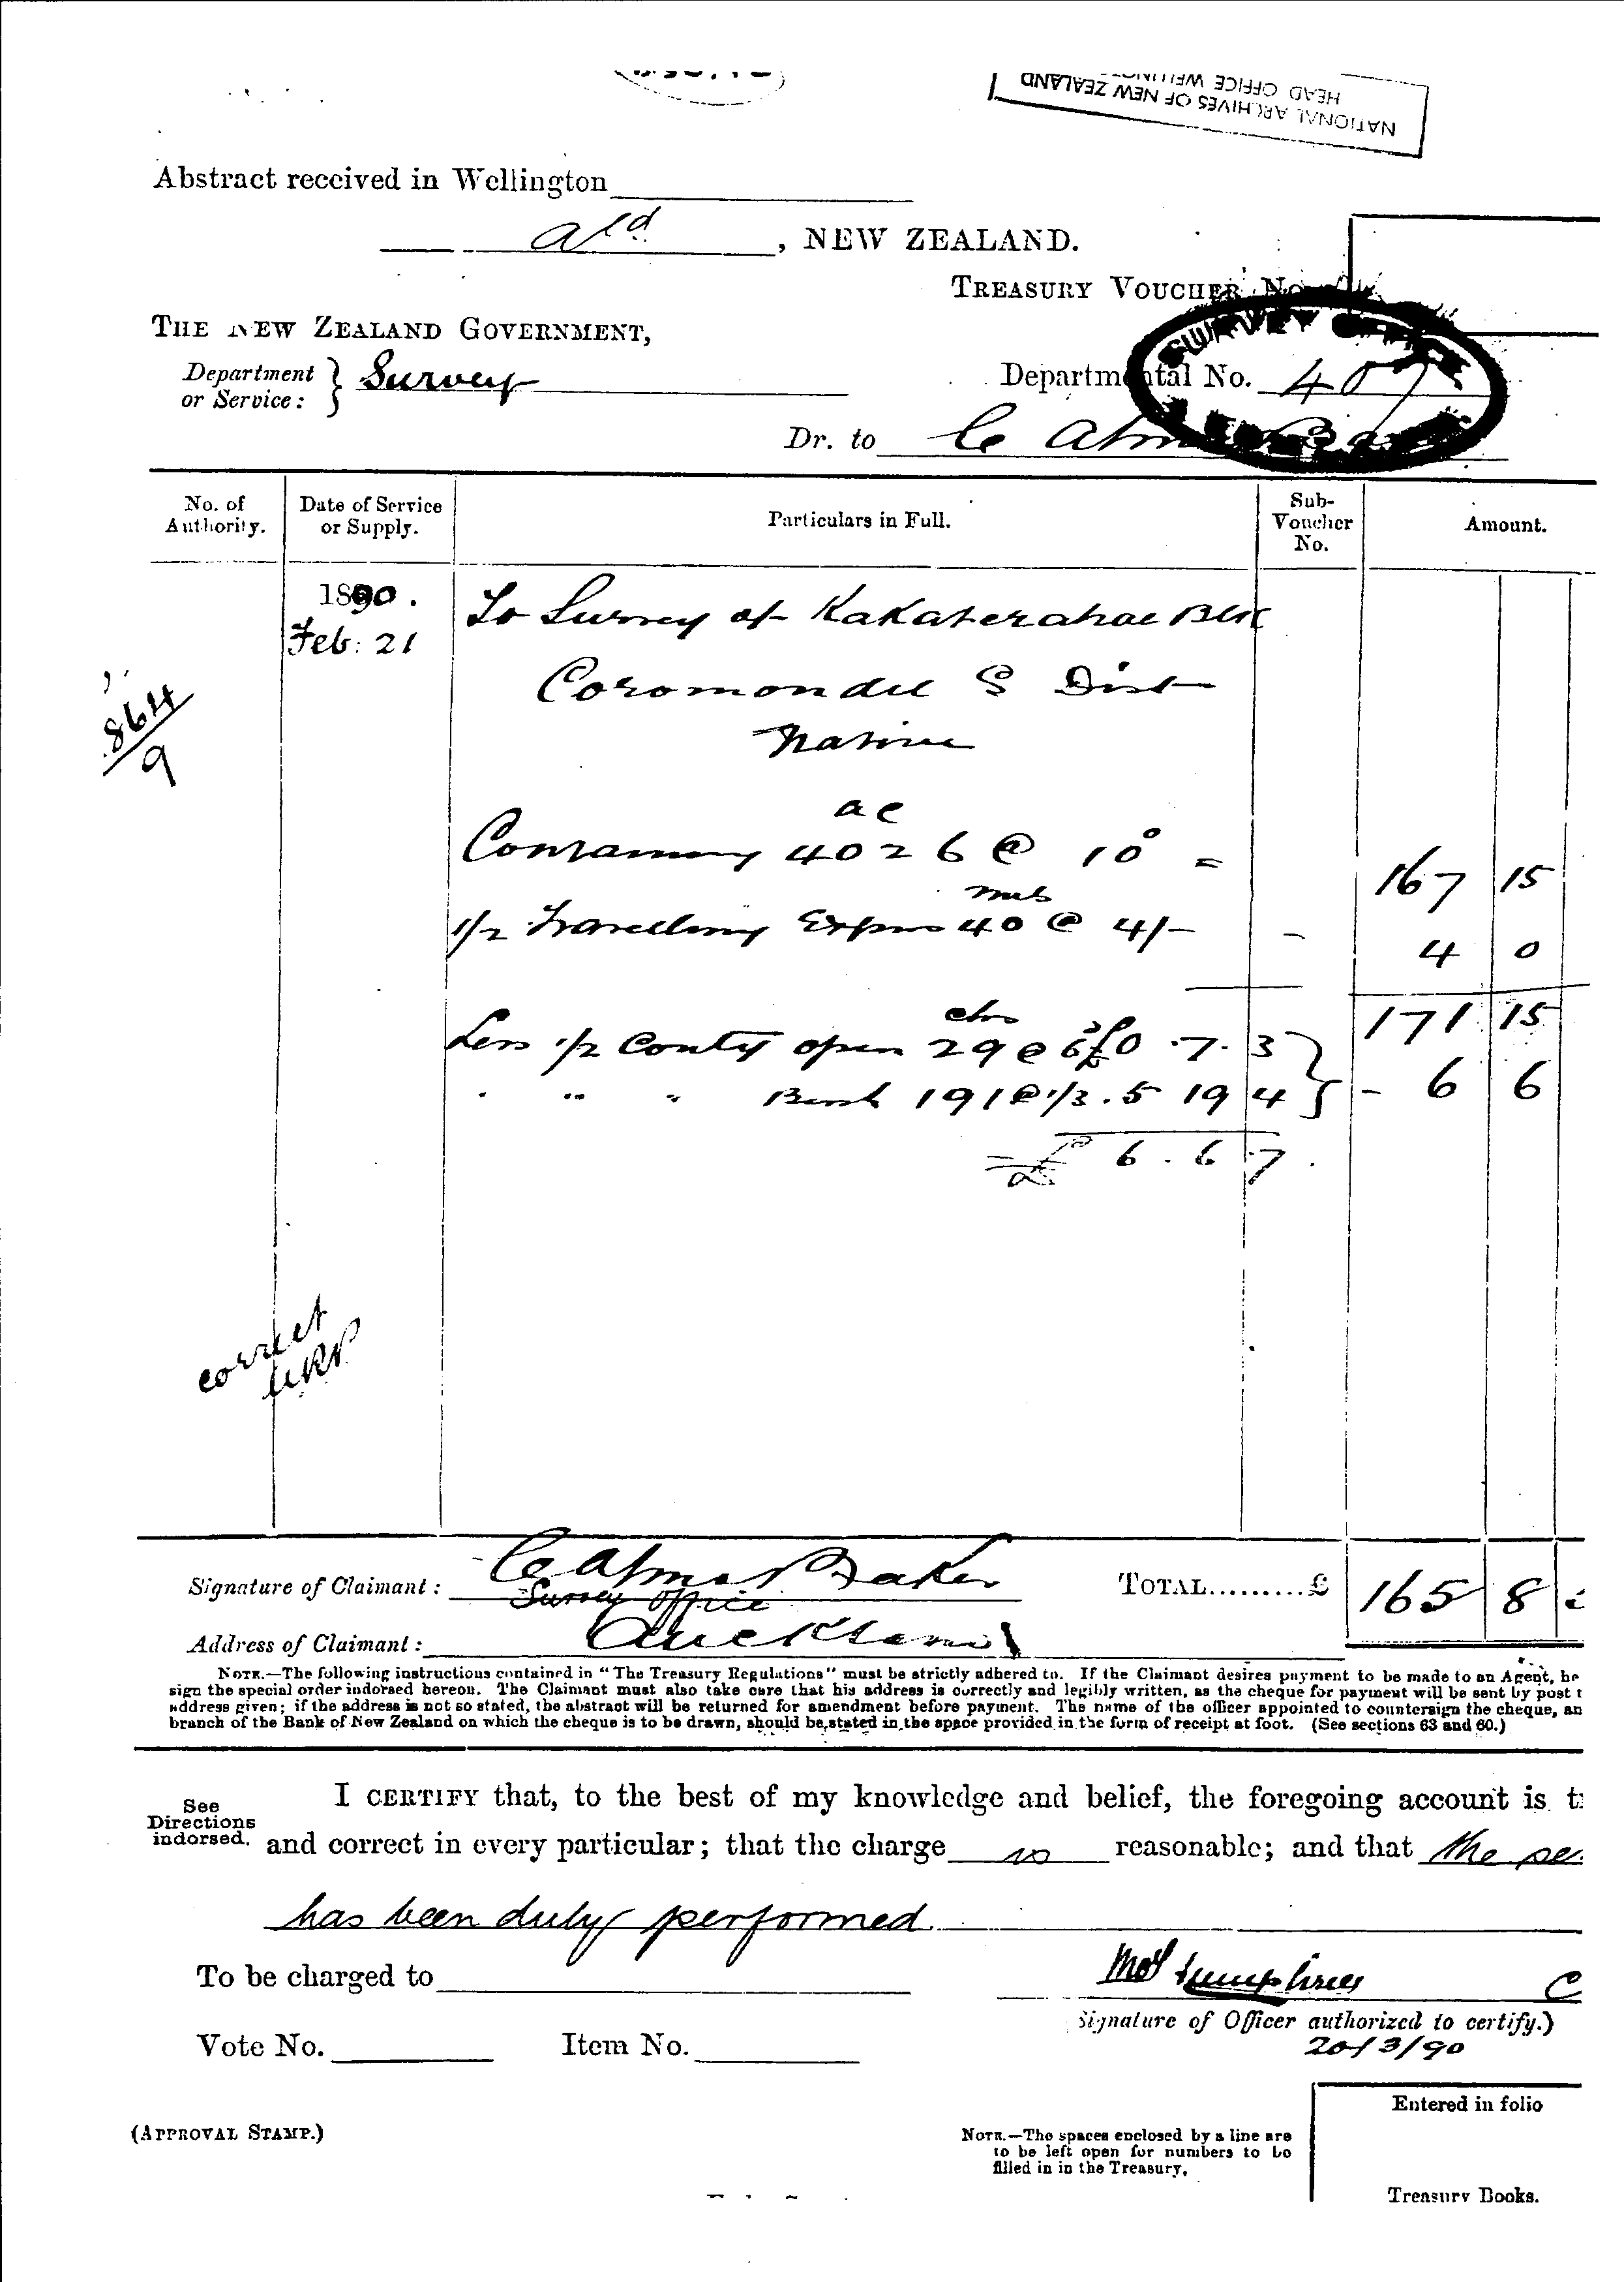 NATIONAL ARCHIVES OF NEW ZEALAND
HEAD OFFICE WELLING
Abstract received in Wellington
Ald, NEW ZEALAND.
TREASURY VOUCHER No
THE NEW ZEALAND GOVERNMENT,
Department or Service: } Survey
Departmental No. 407
SURVEY OFFICE
Dr. to C Alma Baker
No. of Authority.
Date of Service or Supply.
Particulars in Full.
Sub-Voucher No.
Amount.
1890.
Feb: 21
To Survey of Kakaterahae Blk
Coromondel S Dist
Native
864/9
ac
Containing 4026 @ 10° = 167 15
mls
1/2 Travelling Expns 40 @ 4/- - 4 0
171 15
chs
Less 1/2 Conty open 29 @ 3 £0 .7. 3 }
" " " Bush 191 @ 1/3 . 5 19 4 } - 6 6
= £ 6 . 6 7 .
correct
Signature of Claimant: C Alma Baker
Survey Office
TOTAL.........£ 165 8
Address of Claimant: Auckland
NOTE.—The following instructions contained in "The Treasury Regulations" must be strictly adhered to. If the Claimant desires payment to be made to an Agent, he
sign the special order indorsed hereon. The Claimant must also take care that his address is correctly and legibly written, as the cheque for payment will be sent by post t
address given; if the address is not so stated, the abstract will be returned for amendment before payment. The name of the officer appointed to countersign the cheque, an
branch of the Bank of New Zealand on which the cheque is to be drawn, should be stated in the space provided in the form of receipt at foot. (See sections 63 and 60.)
See Directions indorsed.
I CERTIFY that, to the best of my knowledge and belief, the foregoing account is t
and correct in every particular; that the charge is reasonable; and that the se
has been duly performed
To be charged to
Humphries C
Signature of Officer authorized to certify.)
Vote No. Item No.
20/3/90
Entered in folio
(APPROVAL STAMP.)
NOTE.—The spaces enclosed by a line are
to be left open for numbers to be
filled in in the Treasury.
Treasury Books.